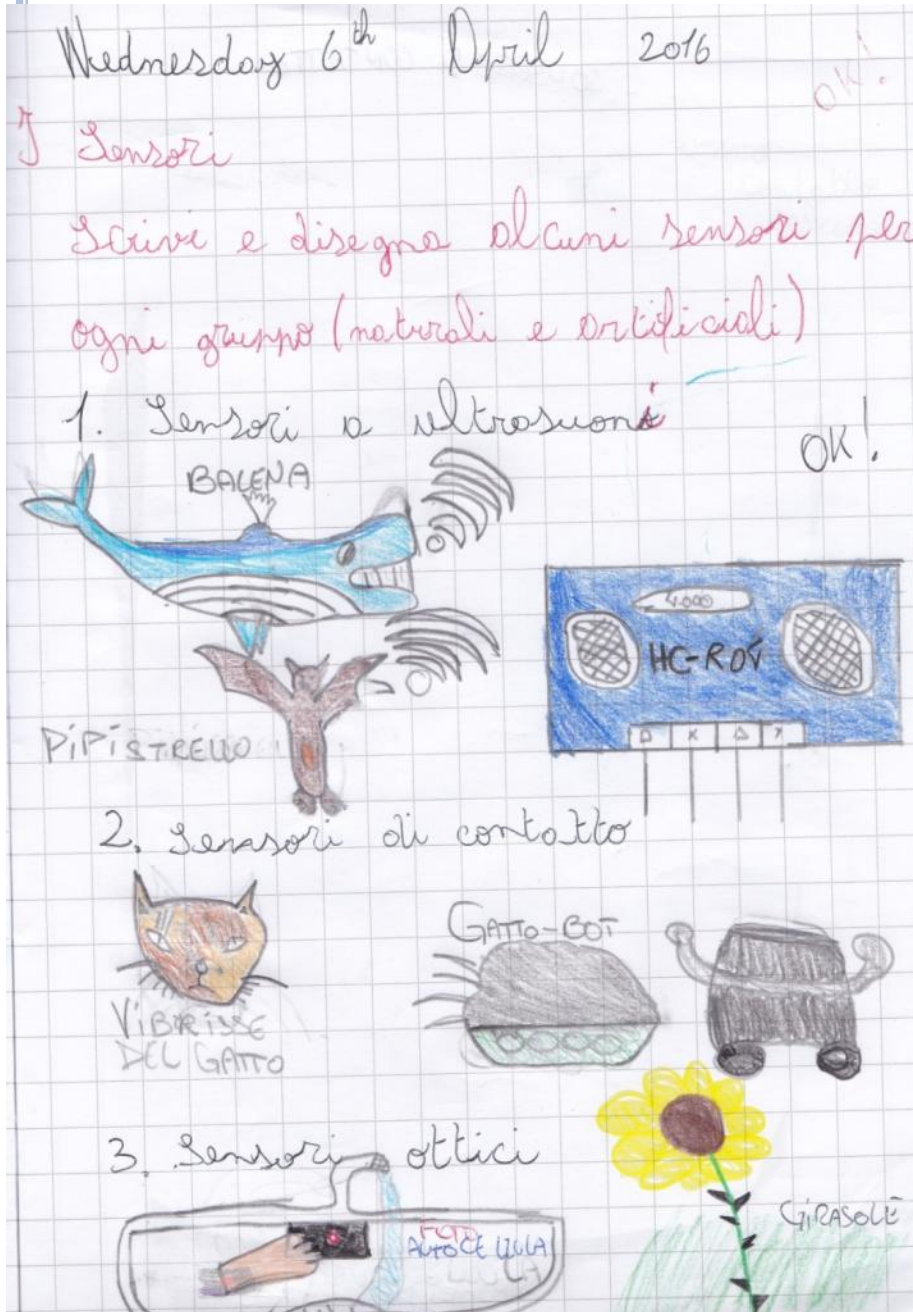 Wednesday 6th April 2016
OK!
I Sensori
Scrivi e disegna alcuni sensori per
ogni gruppo (naturali e artificiali)
1. Sensori a ultrasuoni
OK!
BALENA
4.000
HC-R04
PIPISTRELLO
2. Sensori di contatto
GATTO-BOT
VIBRISSE
DEL GATTO
3. Sensori ottici
GIRASOLE
FOTO
AUTOCELLULA